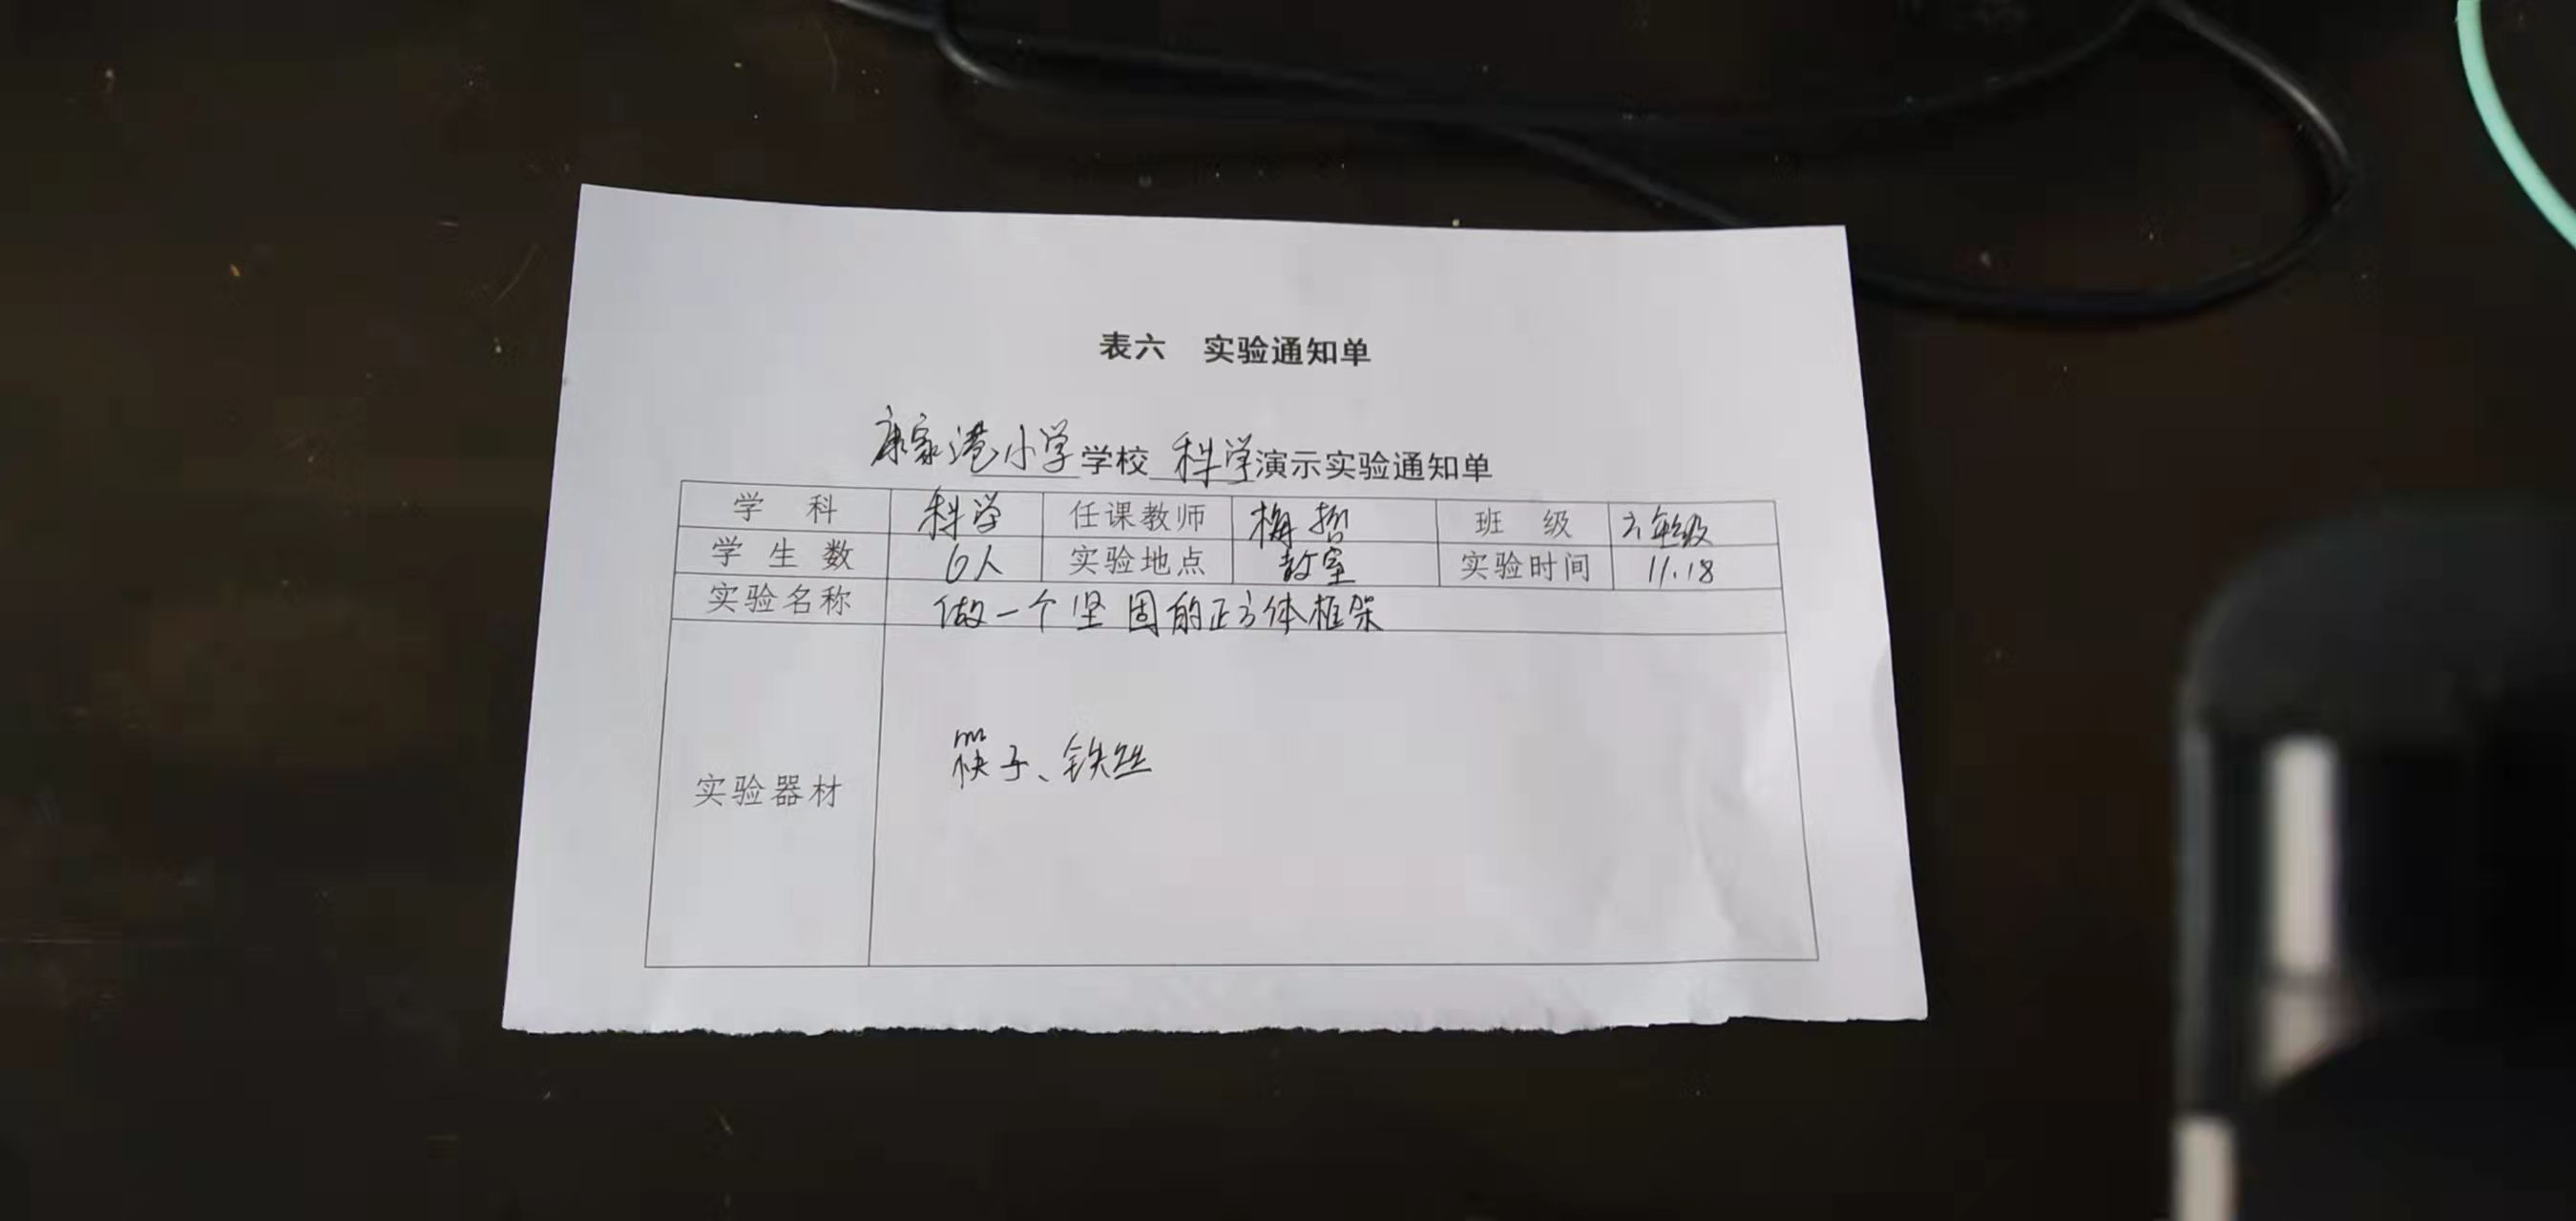 表六 实验通知单
康家港小学学校 科学演示实验通知单
学 科 科学 任课教师 梅哲 班 级 六年级
学 生 数 6人 实验地点 教室 实验时间 11.18
实验名称 做一个坚固的正方体框架
实验器材 筷子、铁丝